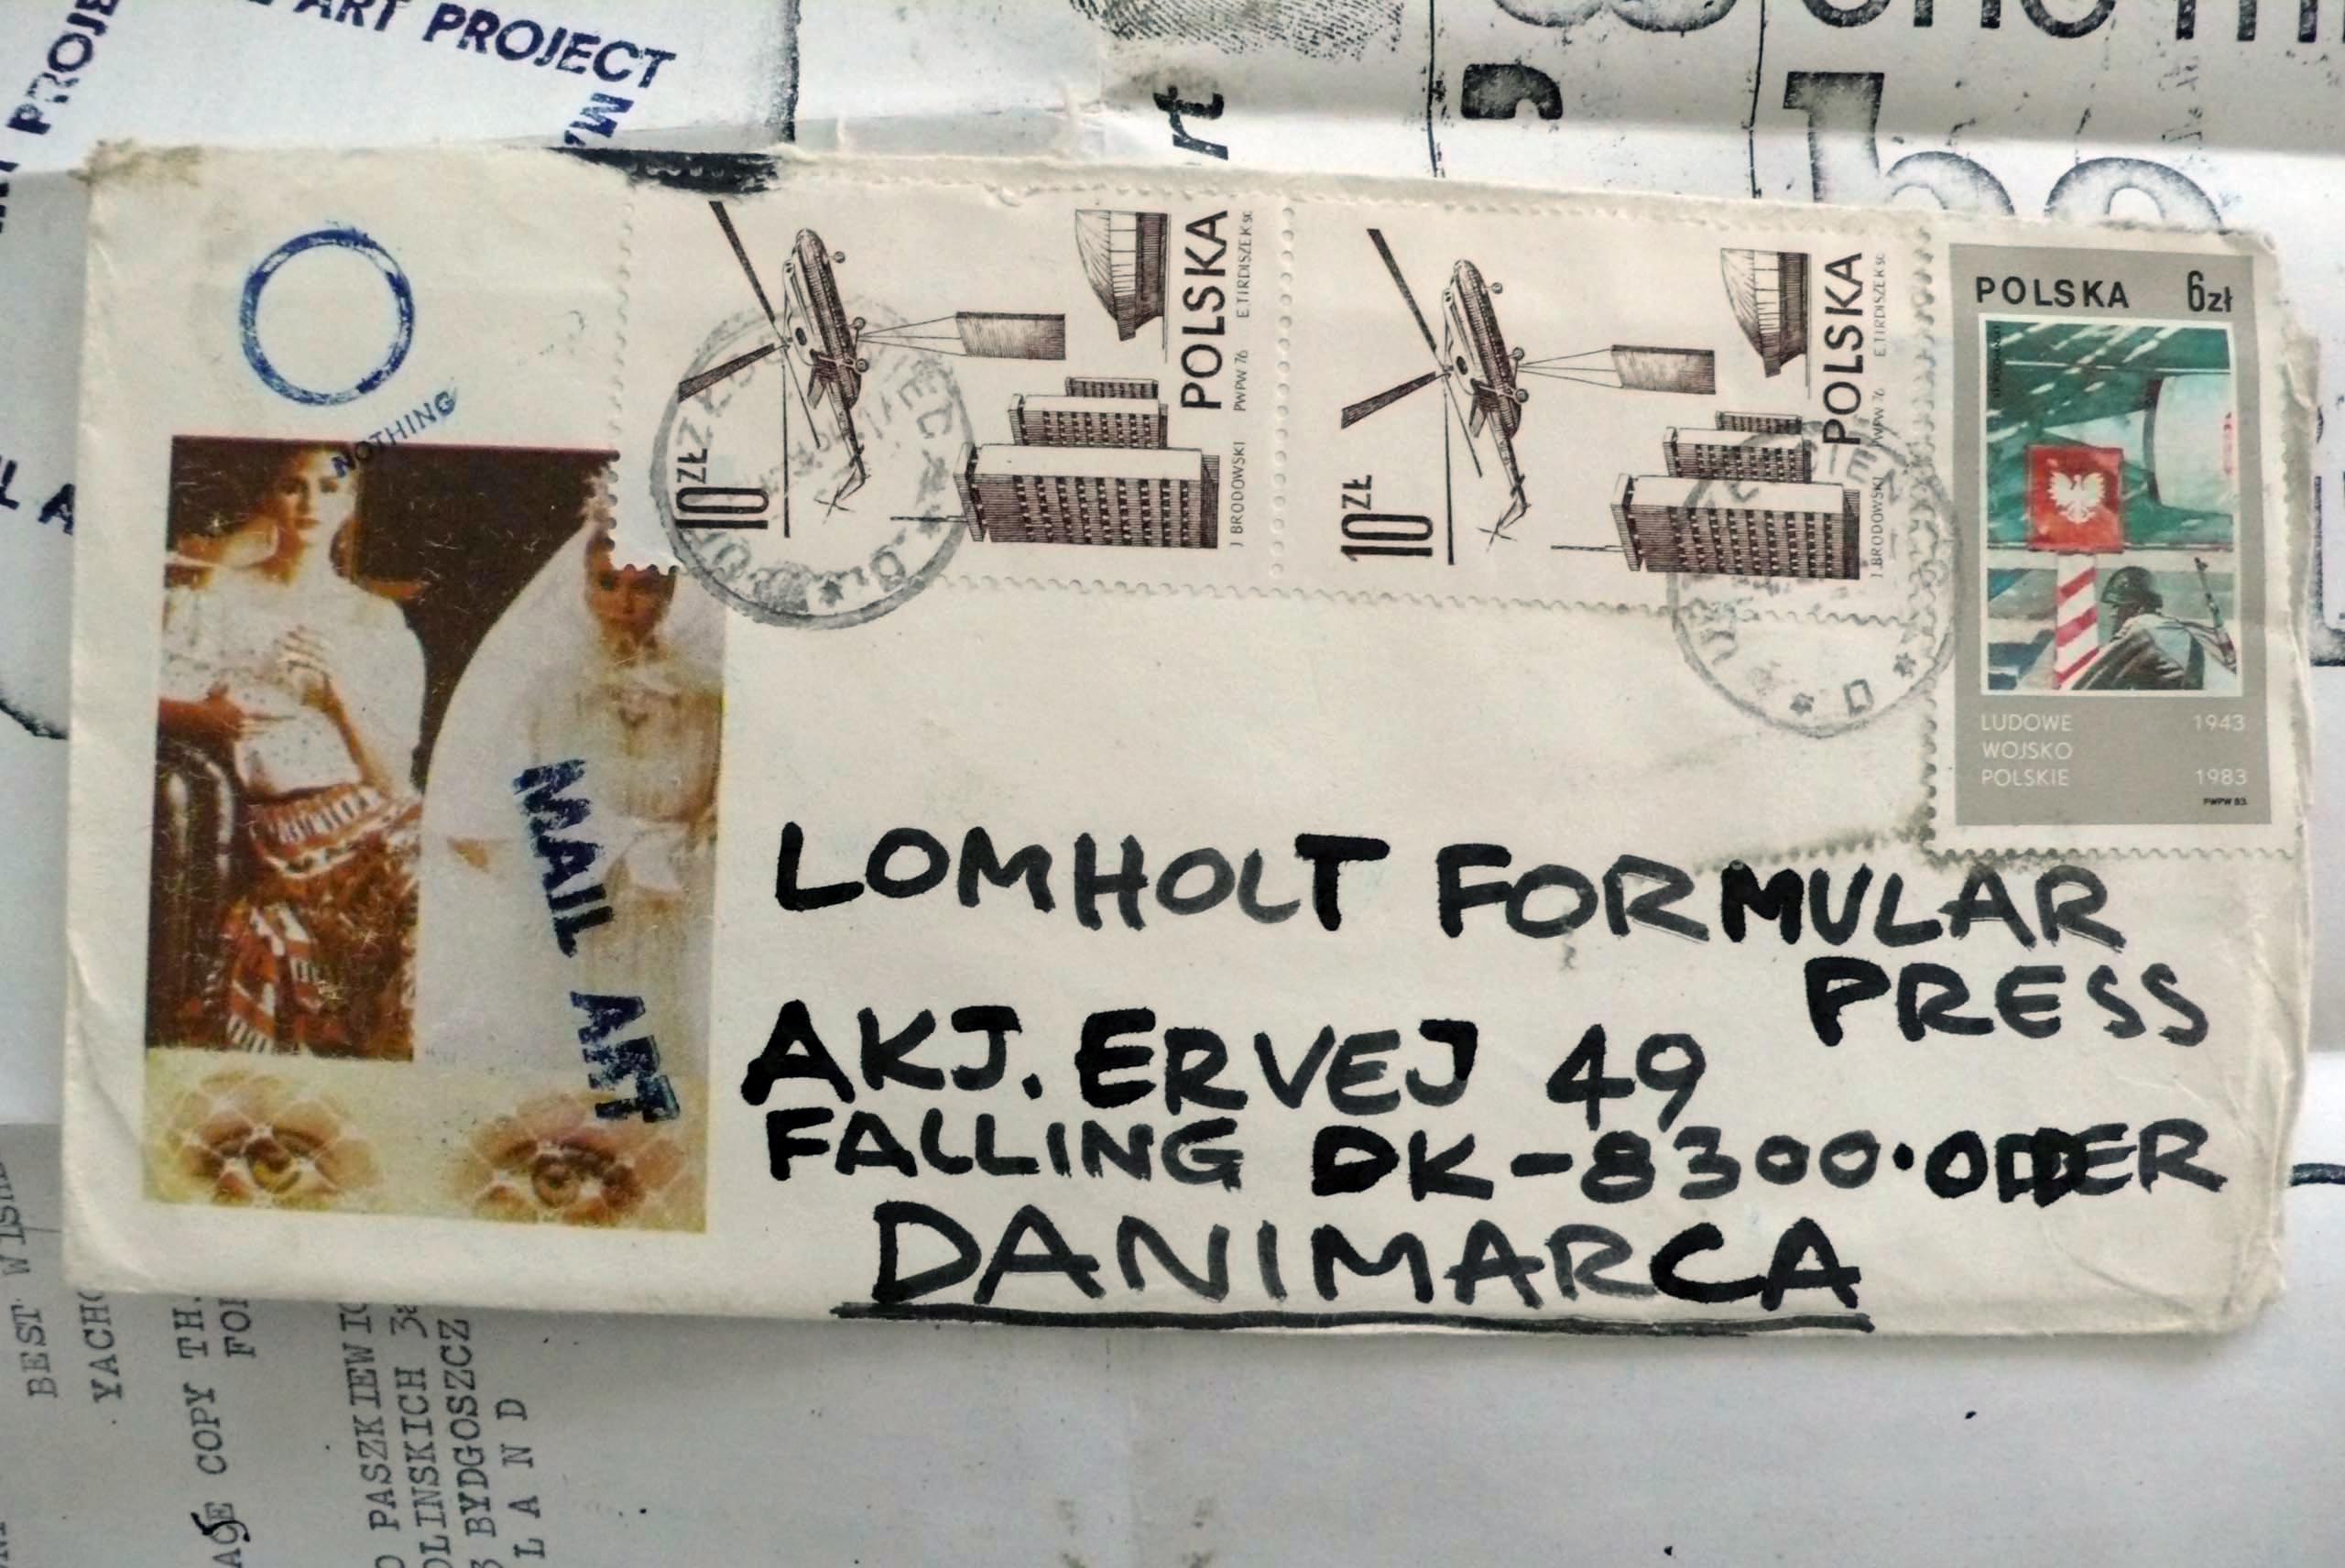 ART PROJECT
rt
NOTHING
10 ZŁ
POLSKA
J. BRODOWSKI PWPW 76 E.TIRDISZEK SC.
10 ZŁ
POLSKA
J. BRODOWSKI PWPW 76 E.TIRDISZEK SC.
POLSKA 6zł
LUDOWE 1943
WOJSKO
POLSKIE 1983
PWPW 83
MAIL ART
LOMHOLT FORMULAR
PRESS
AKJ.ERVEJ 49
FALLING DK-8300·ODDER
DANIMARCA
BEST WISHE
YACHO
COPY TH
FOR
PASZKIEWIC
OLINSKICH 38
BYDGOSZCZ
LAND